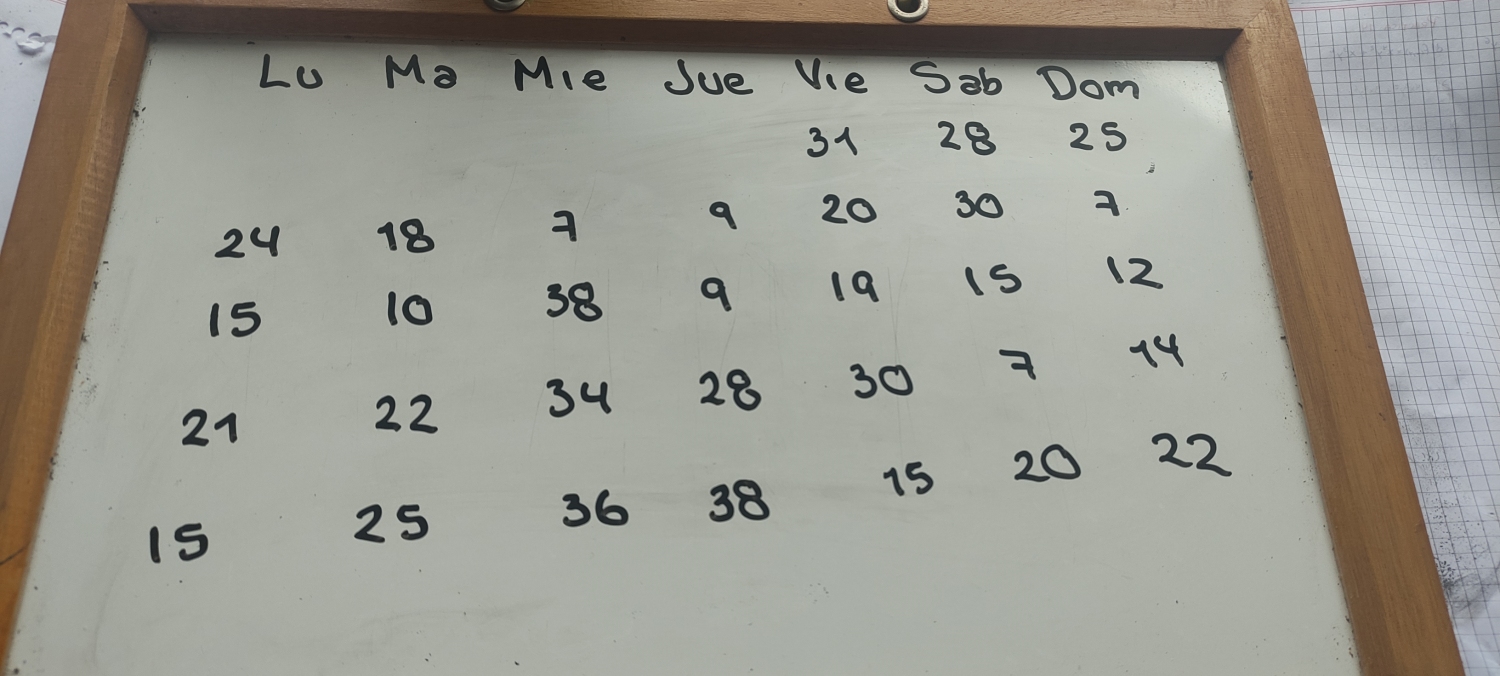 Lu Ma Mie Jue Vie Sab Dom
31 28 25
24 18 7 9 20 30 7
15 10 38 9 19 15 12
21 22 34 28 30 7 14
15 25 36 38 15 20 22